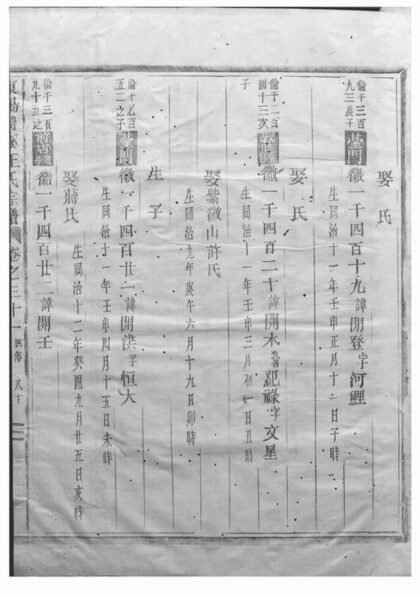 娶氏
倫千三百九三長子 徽一千四百十九諱開登字河鯉
生同治十一年壬申正月十一日子時
娶氏
倫千二百四十三次子 徽一千四百二十諱開木紀祿字文星
生同治十一年壬申三月初一日丑時
娶紫微山許氏
生同治九年庚午六月十九日卯時
生子
倫千乙百五二之子 徽一千四百廿一諱開洪字恒大
生同治十一年壬申四月十五日未時
娶蔣氏
生同治十二年癸酉九月廿五日亥時
倫千三百九十五之 徽一千四百廿二諱開壬
王氏宗譜 卷之三十一 八十